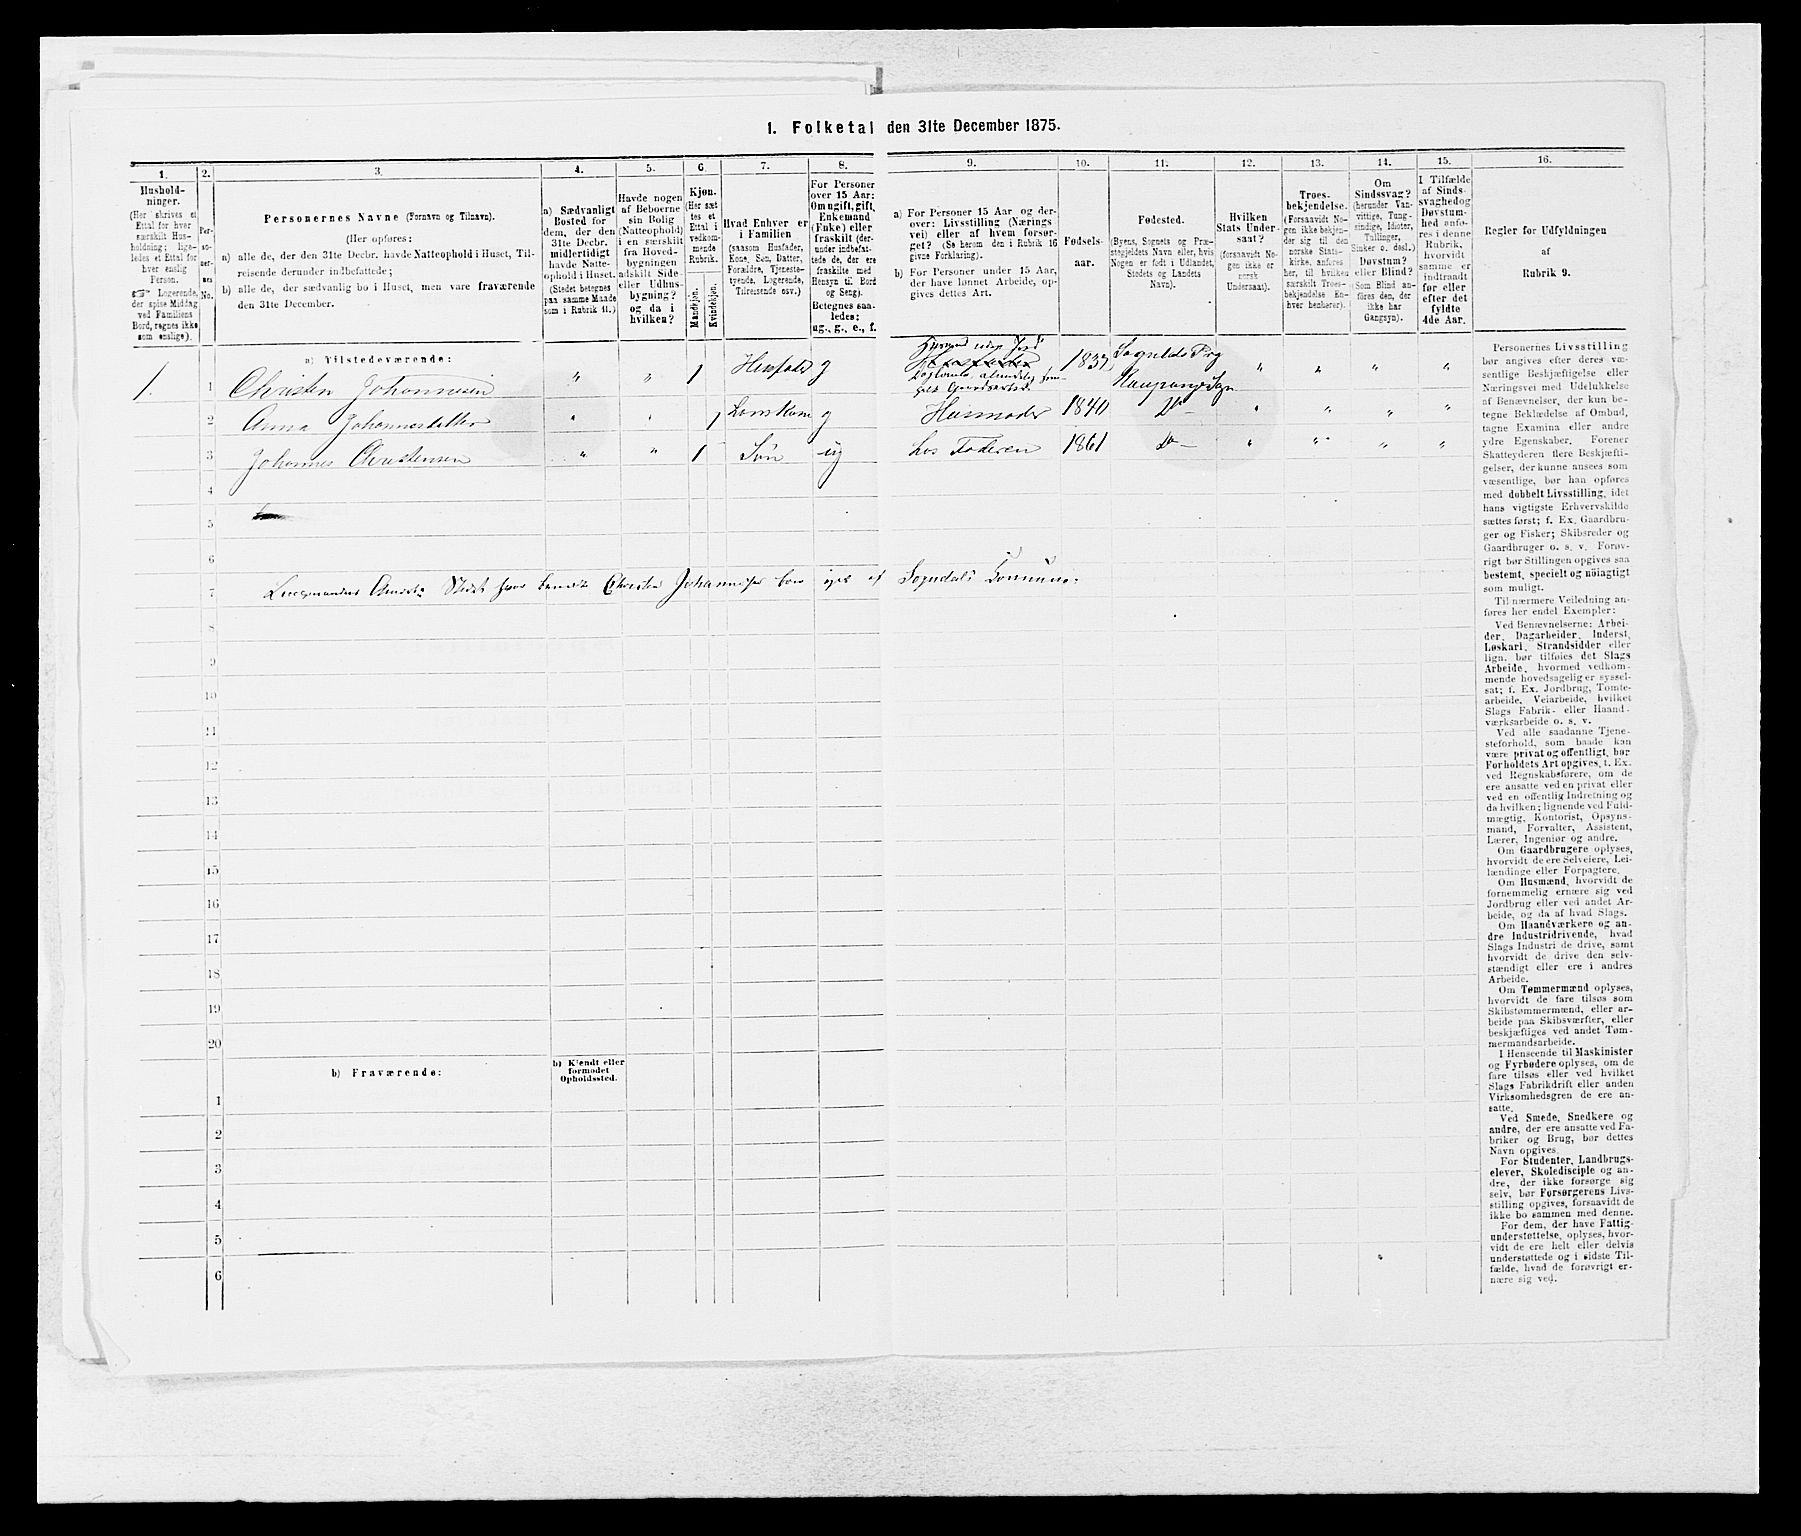 1. Folketal den 31te December 1875.
1. 2. 3. 4. 5. 6. 7. 8. 9. 10. 11. 12. 13. 14. 15. 16.
Hushold-
ninger.
(Her skrives et
Ettal for hver
særskilt Hus-
holdning; lige-
ledes et Ettal for
hver enslig
Person.
☞ Logerende,
der spise Middag
ved Familiens
Bord, regnes ikke
som enslige).
Per-
so-
ner-
nes
No.
Personernes Navne (Fornavn og Tilnavn).
(Her opføres:
a) alle de, der den 31te Decbr. havde Natteophold i Huset, Til-
reisende derunder indbefattede;
b) alle de, der sædvanlig bo i Huset, men vare fraværende
den 31te December.
a) Sædvanligt
Bosted for
dem, der den
31te Decbr.
midlertidigt
havde Natte-
ophold i Huset.
(Stedet betegnes
paa samme Maade
som i Rubrik 11.)
Havde nogen
af Beboerne
sin Bolig
(Natteophold)
i en særskilt
fra Hoved-
bygningen
adskilt Side-
eller Udhus-
bygning?
og da i
hvilken?
Kjøn.
(Her sæt-
tes et
Ettal i
vedkom-
mende
Rubrik.
Mandkjøn.
Kvindekjøn.
Hvad Enhver er
i Familien
(saasom Husfader,
Kone, Søn, Datter,
Forældre, Tjeneste-
tyende, Logerende,
Tilreisende osv.)
For Personer
over 15 Aar:
Om ugift, gift,
Enkemand
(Enke) eller
fraskilt (der-
under indbefat-
tede de, der ere
fraskilte med
Hensyn til Bord
og Seng).
Betegnes saa-
ledes:
ug., g., e., f.
a) For Personer 15 Aar og der-
over: Livsstilling (Nærings-
vei) eller af hvem forsør-
get? (Se herom den i Rubrik 16
givne Forklaring).
b) For Personer under 15 Aar,
der have lønnet Arbeide, op-
gives dettes Art.
Fødsels-
aar.
Fødested.
(Byens, Sognets og Præ-
stegjeldets Navn eller, hvis
Nogen er født i Udlandet,
Stedets og Landets
Navn).
Hvilken
Stats Under-
saat?
(forsaavidt No-
gen ikke er
norsk
Undersaat).
Troes-
bekjendelse.
(Forsaavidt No-
gen ikke bekjen-
der sig til den
norske Stats-
kirke, anføres
her, til hvilken
særskilt Troes-
bekjendelse En-
hver henhører).
Om
Sindssvag?
(herunder Van-
vittige, Tung-
sindige, Idioter,
Tullinger,
Sinker o. desl.)
Døvstum?
eller Blind?
(Som Blind an-
føres den, der
ikke har
Gangsyn).
I Tilfælde
af Sinds-
svaghed og
Døvstum-
hed anfø-
res i denne
Rubrik,
hvorvidt
samme er
indtraadt
før eller
efter det
fyldte
4de Aar.
Regler for Udfyldningen
af
Rubrik 9.
a) Tilstedeværende:
1. 1 Christen Johannesen " " 1 Husfader g 1837 Sogndals Prg " " " "
Kaupanger Sgn
2 Anna Johannesdatter " " 1 g Husmoder 1840 Do " " " "
3 Johannes Christensen " " 1 Søn ug hos Faderen 1861 Do " " " "
4
5
6
7 Christen Johannesen af Sogndals
8
9
10
11
12
13
14
15
16
17
18
19
20
b) Fraværende:
b) Kjendt eller
formodet
Opholdssted.
1
2
3
4
5
6
Personernes Livsstilling
bør angives efter deres væ-
sentlige Beskjæftigelse eller
Næringsvei med Udelukkelse
af Benævnelser, der kun be-
tegne Beklædelse af Ombud,
tagne Examina eller andre
ydre Egenskaber. Forener
Skatteyderen flere Beskjæfti-
gelser, der kunne ansees som
væsentlige, bør han opføres
med dobbelt Livsstilling, idet
hans vigtigste Erhvervskilde
sættes først; f. Ex. Gaardbru-
ger og Fisker; Skibsreder og
Gaardbruger o. s. v. Forøv-
rigt bør Stillingen opgives saa
bestemt, specielt og nöiagtigt
som muligt.
Til nærmere Veiledning an-
føres her endel Exempler:
Ved Benævnelserne: Arbei-
der, Dagarbeider, Inderst,
Løskarl, Strandsidder eller
lign. bør tilføies det Slags
Arbeide, hvormed vedkom-
mende hovedsagelig er syssel-
sat; f. Ex. Jordbrug, Tomte-
arbeide, Veiarbeide, hvilket
Slags Fabrik- eller Haand-
værksarbeide o. s. v.
Ved alle saadanne Tjene-
steforhold, som baade kan
være privat og offentligt, bør
Forholdets Art opgives, f. Ex.
ved Regnskabsførere, om de
ere ansatte ved en privat eller
ved en offentlig Indretning og
da hvilken; lignende ved Fuld-
mægtig, Kontorist, Opsyns-
mand, Forvalter, Assistent,
Lærer, Ingeniør og andre.
Om Gaardbrugere oplyses,
hvorvidt de ere Selveiere, Lei-
lændinge eller Forpagtere.
Om Husmænd, hvorvidt de
fornemmelig ernære sig ved
Jordbrug eller ved andet Ar-
beide, og da af hvad Slags.
Om Haandværkere og an-
dre Industridrivende, hvad
Slags Industri de drive, samt
hvorvidt de drive den selv-
stændigt eller ere i andres
Arbeide.
Om Tømmermænd oplyses,
hvorvidt de fare tilsøs som
Skibstømmermænd, eller ar-
beide paa Skibsværfter, eller
beskjæftiges ved andet Tøm-
mermandsarbeide.
I Henseende til Maskinister
og Fyrbødere oplyses, om de
fare tilsøs eller ved hvilket
Slags Fabrikdrift eller anden
Virksomhedsgren de ere an-
satte.
Ved Smede, Snedkere og
andre, der ere ansatte ved Fa-
briker og Brug, bør dettes
Navn opgives.
For Studenter, Landbrugs-
elever, Skoledisciple og an-
dre, der ikke forsørge sig
selv, bør Forsørgerens Livs-
stilling opgives, forsaavidt de
ikke bo sammen med denne.
For dem, der have Fattig-
understøttelse, oplyses, hvor-
vidt de ere helt eller delvis
understøttede og i sidste Til-
fælde, hvad de forøvrigt er-
nære sig ved.